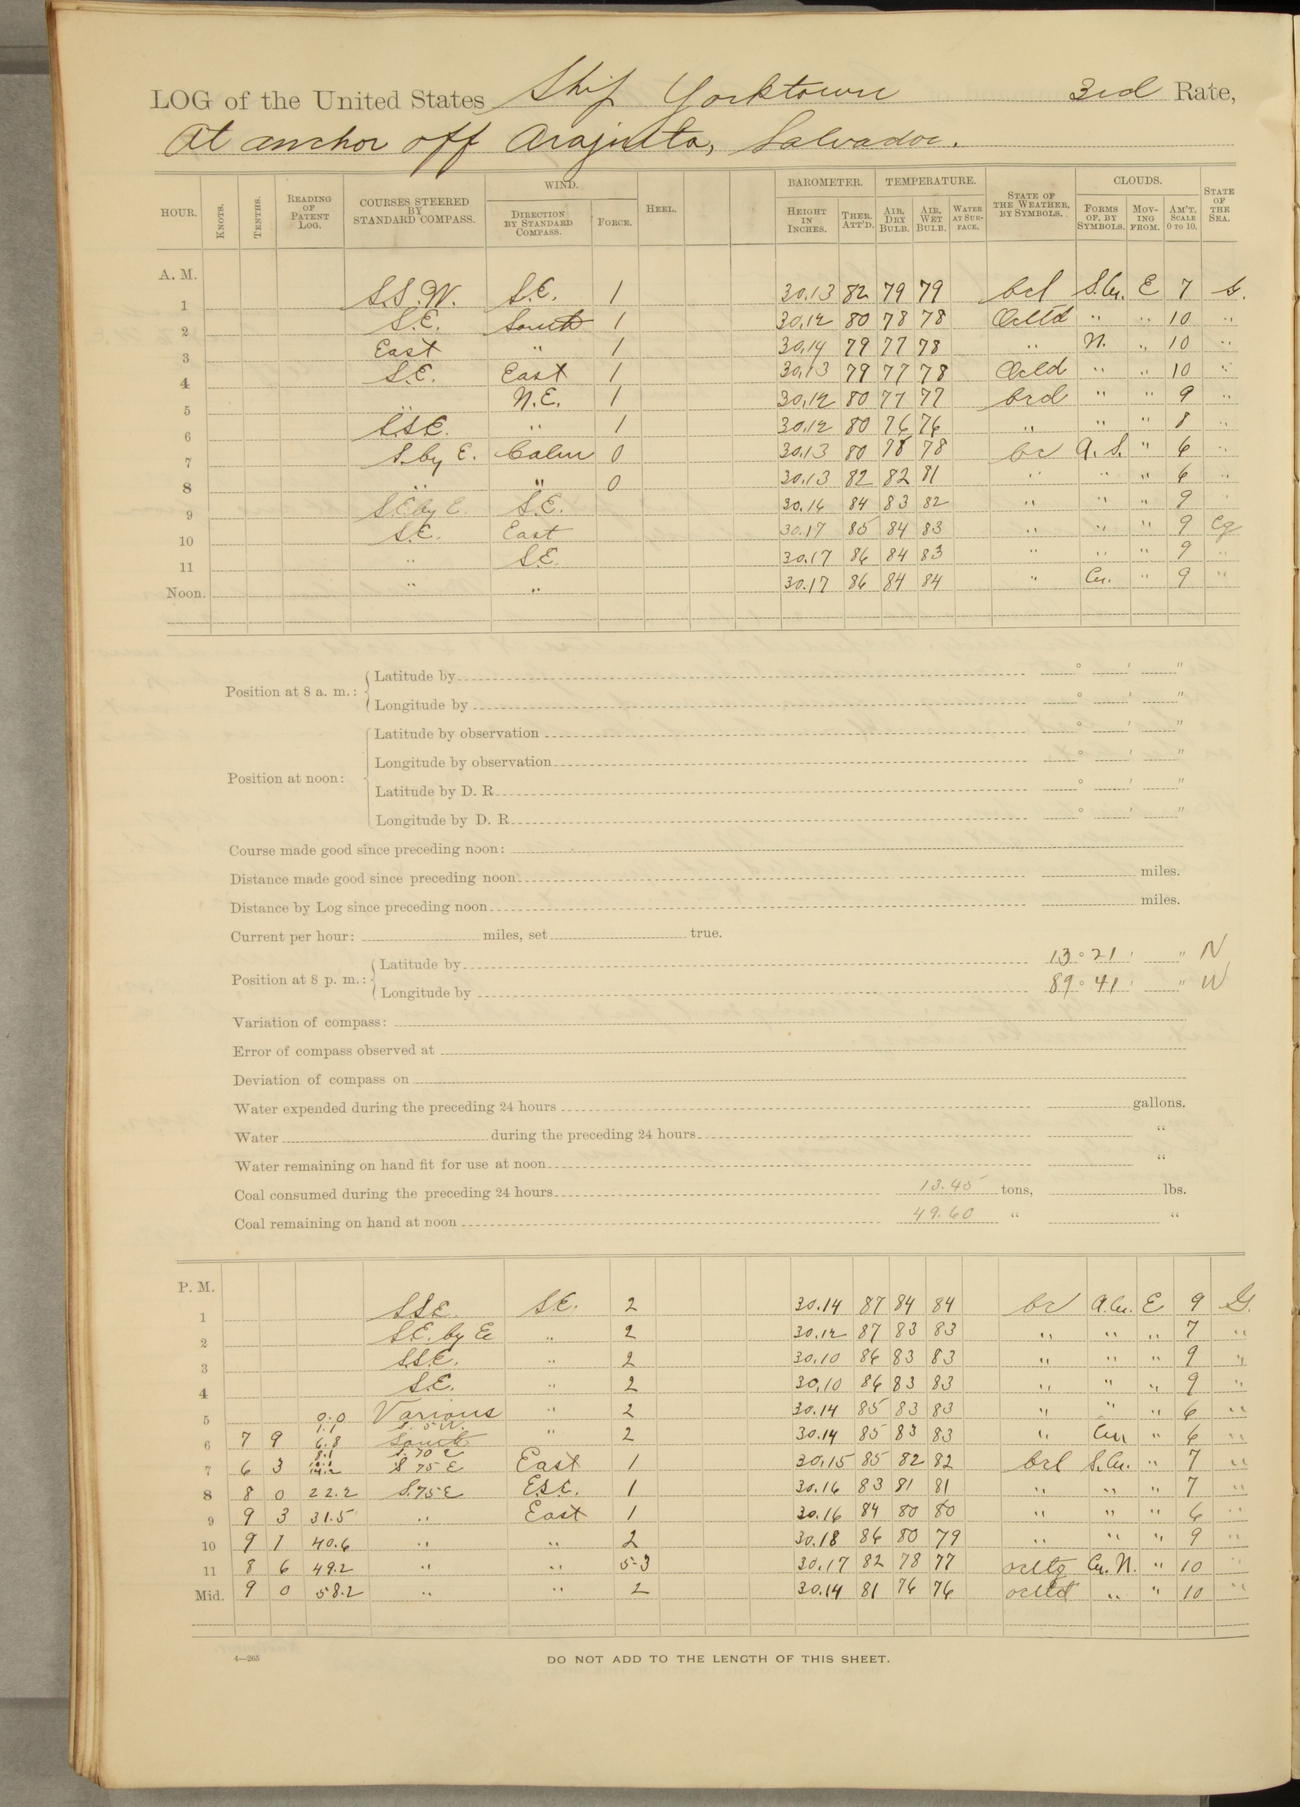 LOG of the United States Ship Yorktown 3rd Rate,
At anchor off Acajutla, Salvador.
HOUR. KNOTS. TENTHS. READING OF PATENT LOG. COURSES STEERED BY STANDARD COMPASS. WIND. DIRECTION BY STANDARD COMPASS. FORCE. HEEL. BAROMETER. HEIGHT IN INCHES. THER. ATT'D. TEMPERATURE. AIR, DRY BULB. AIR, WET BULB. WATER AT SURFACE. STATE OF THE WEATHER, BY SYMBOLS. CLOUDS. FORMS OF, BY SYMBOLS. MOVING FROM. AM'T. SCALE 0 TO 10. STATE OF THE SEA.
A. M.
1 S.S.W. S.E. 1 30.13 82 79 79 bcl S.Cu. E 7 S.
2 S.E. South 1 30.12 80 78 78 " " 10 "
3 East " 1 30.14 79 77 78 " N. " 10 "
4 S.E. East 1 30.13 79 77 78 " " 10 "
5 " N.E. 1 30.12 80 77 77 " " 9 "
6 S.S.E. " 1 30.12 80 76 76 " " " 8 "
7 S. by E. Calm 0 30.13 80 78 78 bc A. S. " 6 "
8 " " 0 30.13 82 82 81 " " " 6 "
9 S.E. by E. S.E. 30.16 84 83 82 " " " 9 "
10 S.E. East 30.17 85 84 83 " " " 9
11 " S.E. 30.17 86 84 83 " " " 9 "
Noon. " " 30.17 86 84 84 " Cu. " 9 "
Position at 8 a. m.: Latitude by ° ' "
Longitude by ° ' "
Position at noon: Latitude by observation ° ' "
Longitude by observation ° ' "
Latitude by D. R. ° ' "
Longitude by D. R. ° ' "
Course made good since preceding noon:
Distance made good since preceding noon miles.
Distance by Log since preceding noon miles.
Current per hour: miles, set true.
Position at 8 p. m.: Latitude by 13 ° 21 ' " N
Longitude by 89 ° 41 ' " W
Variation of compass:
Error of compass observed at
Deviation of compass on
Water expended during the preceding 24 hours gallons.
Water during the preceding 24 hours "
Water remaining on hand fit for use at noon "
Coal consumed during the preceding 24 hours 13.45 tons, lbs.
Coal remaining on hand at noon 49.60 " "
P. M.
1 S.S.E. S.E. 2 30.14 87 84 84 bc A.Cu. E 9 S.
2 S.E. by E 2 30.12 87 83 83 " " " 7 "
3 S.S.E. " 2 30.10 86 83 83 " " " 9 "
4 S.E. " 2 30.10 86 83 83 " " " 9 "
5 0.0 Various " 2 30.14 85 83 83 " " " 6 "
1.1 S. 5 W.
6 7 9 6.8 South " 2 30.14 85 83 83 " Cu " 6 "
8.1 S. 70 E
7 6 3 14.2 S 75 E East 1 30.15 85 82 82 bcl S.Cu. " 7 "
8 8 0 22.2 S. 75 E E.S.E. 1 30.16 83 81 81 " " " 7 "
9 9 3 31.5 " East 1 30.16 84 80 80 " " " 6 "
10 9 1 40.6 " " 2 30.18 86 80 79 " " " 9 "
11 8 6 49.2 " " 5-3 30.17 82 78 77 Cu. N. " 10 "
Mid. 9 0 58.2 " " 2 30.14 81 76 76 " " 10 "
4—265
DO NOT ADD TO THE LENGTH OF THIS SHEET.